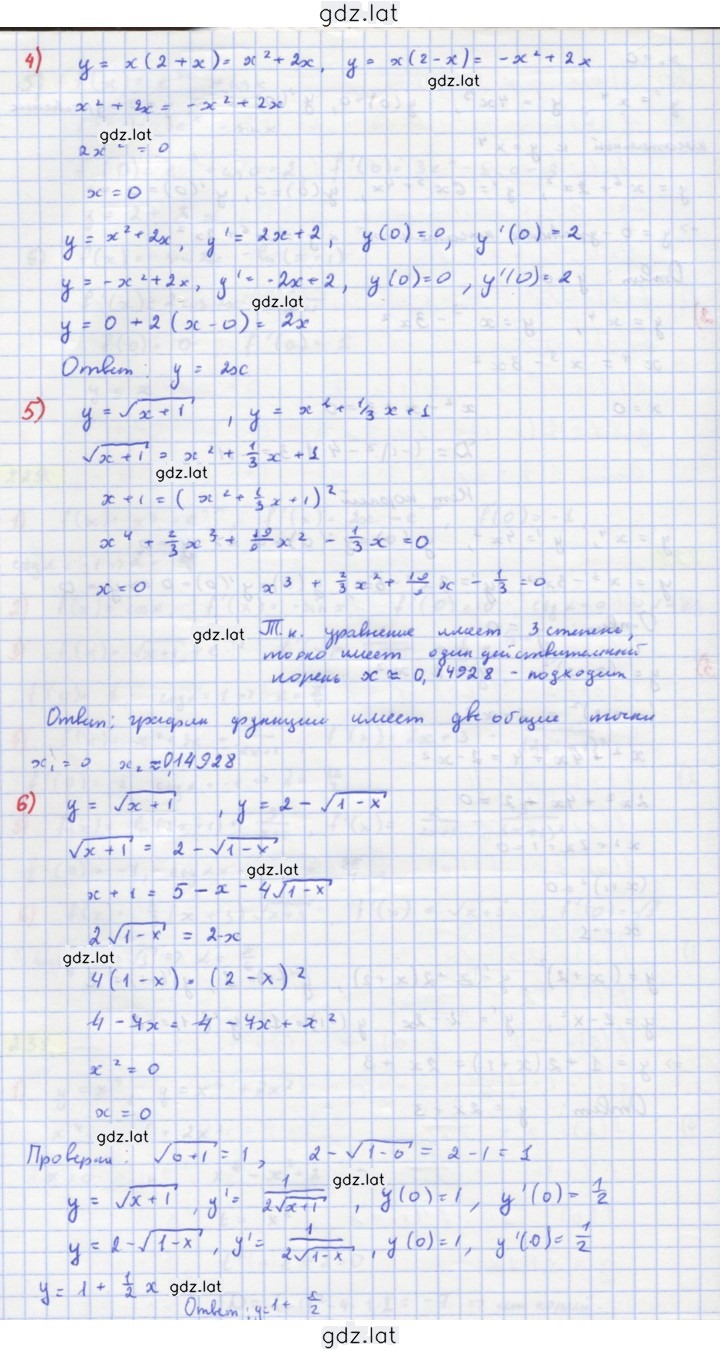 gdz.lat
4) y = x(2+x) = x² + 2x, y = x(2-x) = -x² + 2x
gdz.lat
x² + 2x = -x² + 2x
gdz.lat
2x² = 0
x = 0
y = x² + 2x, y' = 2x + 2, y(0) = 0, y'(0) = 2
y = -x² + 2x, y' = -2x + 2, y(0) = 0, y'(0) = 2
gdz.lat
y = 0 + 2(x-0) = 2x
Ответ: y = 2x
5) y = √(x+1), y = x² + 1/3 x + 1
√(x+1) = x² + 1/3 x + 1
gdz.lat
x + 1 = (x² + 1/3 x + 1)²
x⁴ + 2/3 x³ + 19/9 x² - 1/3 x = 0
x = 0 x³ + 2/3 x² + 19/9 x - 1/3 = 0
gdz.lat Т.к. уравнение имеет 3 степень,
только имеет один действительный
корень x ≈ 0,14928 - подходит
Ответ: графики функции имеет две общие точки
x₁ = 0 x₂ ≈ 0,14928
6) y = √(x+1), y = 2 - √(1-x)
√(x+1) = 2 - √(1-x)
gdz.lat
x + 1 = 5 - x - 4√(1-x)
2√(1-x) = 2-x
gdz.lat
4(1-x) = (2-x)²
4 - 4x = 4 - 4x + x²
x² = 0
x = 0
gdz.lat
Проверка: √(0+1) = 1, 2 - √(1-0) = 2 - 1 = 1
gdz.lat
y = √(x+1), y' = 1/(2√(x+1)), y(0) = 1, y'(0) = 1/2
y = 2 - √(1-x), y' = 1/(2√(1-x)), y(0) = 1, y'(0) = 1/2
y = 1 + 1/2 x gdz.lat
Ответ: y = 1 + x/2
gdz.lat